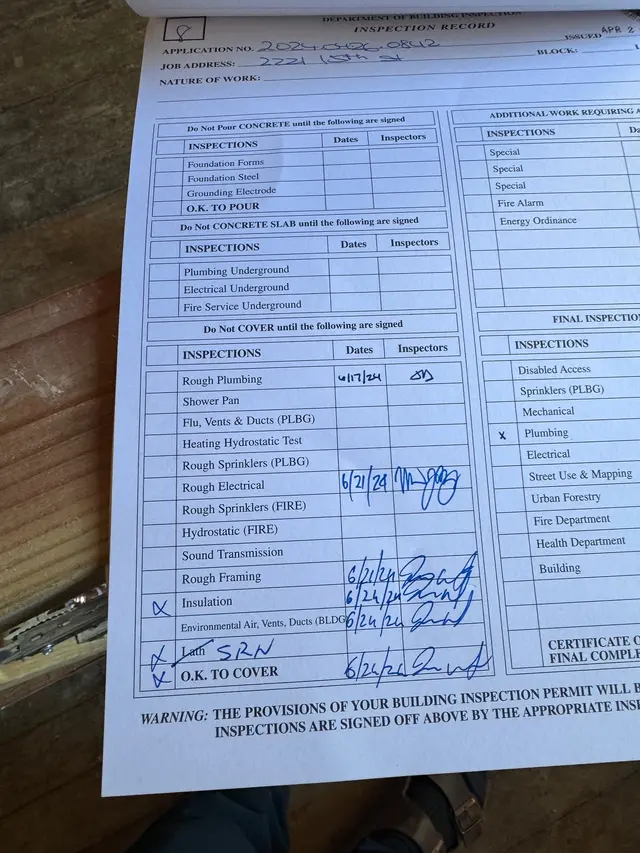 DEPARTMENT OF BUILDING INSPECTION
INSPECTION RECORD
APPLICATION NO. 2024.0426.0842 ISSUED APR 2
JOB ADDRESS: 2221 15th St BLOCK:
NATURE OF WORK:
Do Not Pour CONCRETE until the following are signed
INSPECTIONS Dates Inspectors
Foundation Forms
Foundation Steel
Grounding Electrode
O.K. TO POUR
Do Not CONCRETE SLAB until the following are signed
INSPECTIONS Dates Inspectors
Plumbing Underground
Electrical Underground
Fire Service Underground
Do Not COVER until the following are signed
INSPECTIONS Dates Inspectors
Rough Plumbing 6/17/24
Shower Pan
Flu, Vents & Ducts (PLBG)
Heating Hydrostatic Test
Rough Sprinklers (PLBG)
Rough Electrical 6/21/24
Rough Sprinklers (FIRE)
Hydrostatic (FIRE)
Sound Transmission
Rough Framing 6/21/24
X Insulation 6/24/24
Environmental Air, Vents, Ducts (BLDG 6/24/24
X Lath SRN
X O.K. TO COVER 6/24/24
ADDITIONAL WORK REQUIRING A
INSPECTIONS Da
Special
Special
Special
Fire Alarm
Energy Ordinance
FINAL INSPECTIO
INSPECTIONS
Disabled Access
Sprinklers (PLBG)
Mechanical
x Plumbing
Electrical
Street Use & Mapping
Urban Forestry
Fire Department
Health Department
Building
CERTIFICATE O
FINAL COMPLE
WARNING: THE PROVISIONS OF YOUR BUILDING INSPECTION PERMIT WILL B
INSPECTIONS ARE SIGNED OFF ABOVE BY THE APPROPRIATE INS